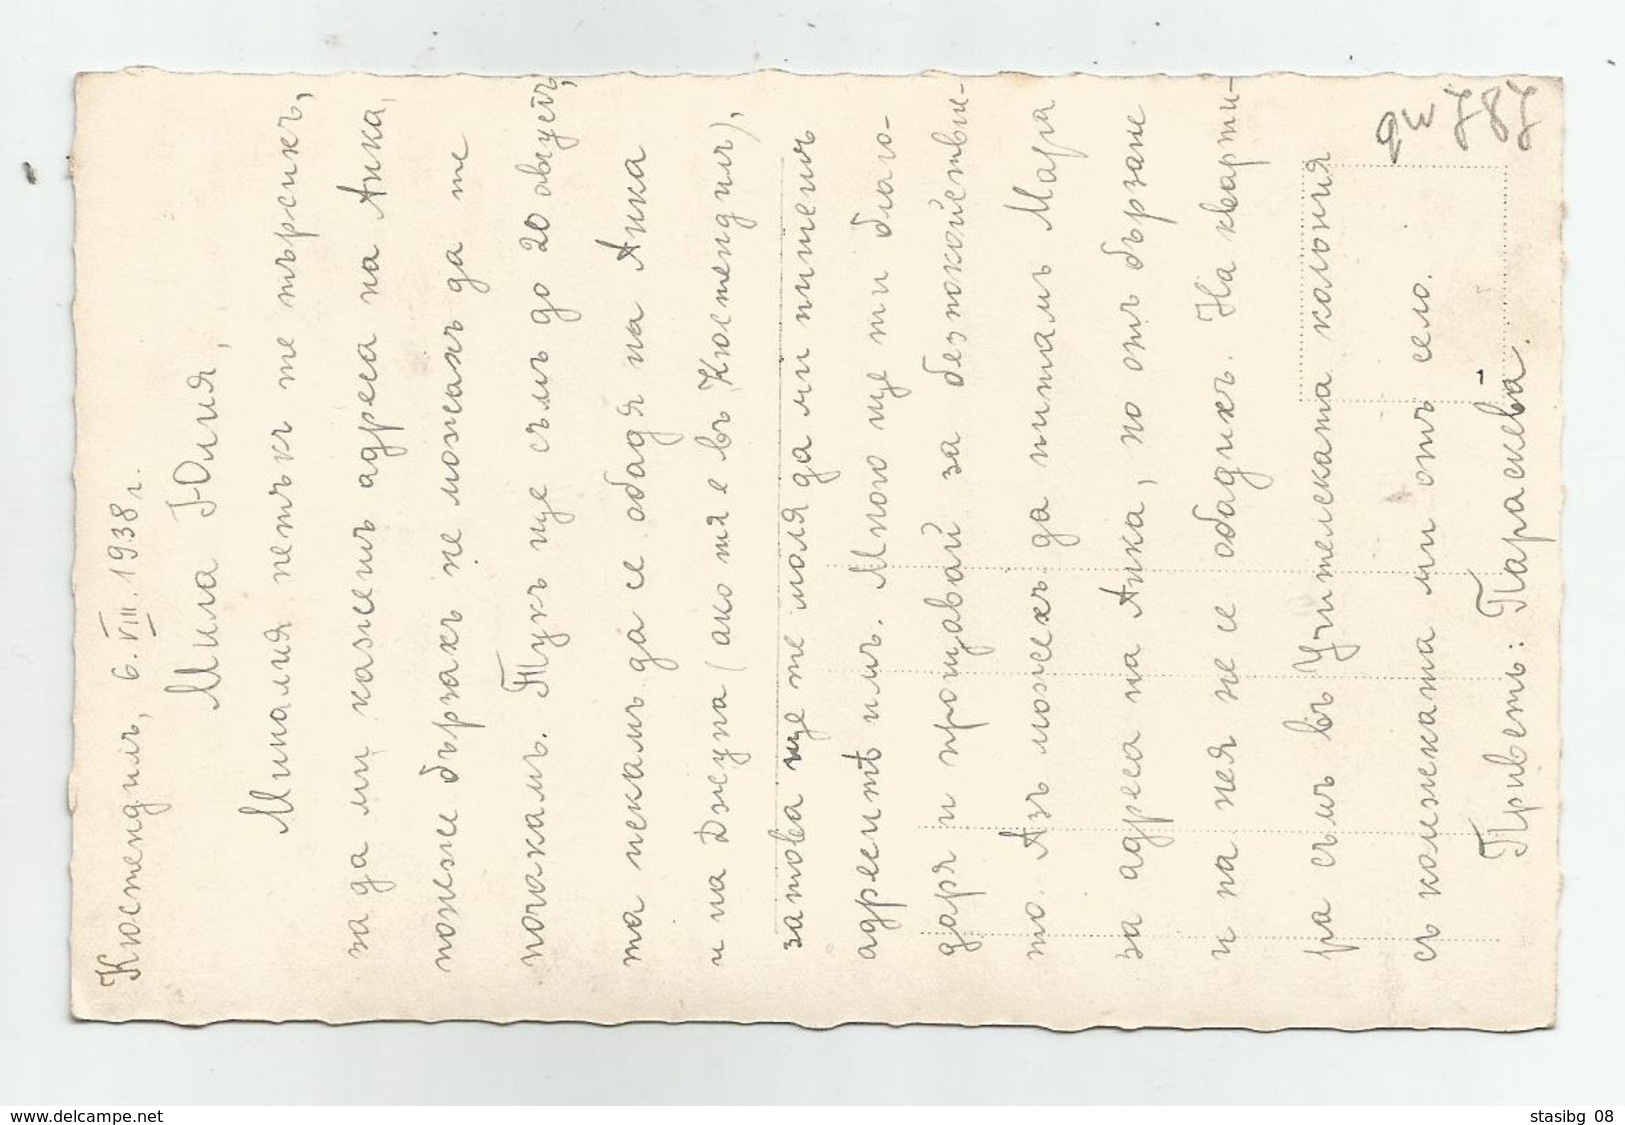 Кюстендилъ, 6.VIII.1938 г.
Мила Юлия,
Миналия петъкъ те търсихъ,
за да ми кажешъ адреса на Анка,
понеже бързахъ не можахъ да те
почакамъ. Тукъ ще съмъ до 20 августъ,
та искамъ да се обадя на Анка
и на Джупа (ако тя е въ Кюстендилъ),
затова ще те моля да ми пишешъ
адреситѣ имъ. Много ще ти благо-
даря и прощавай за безпокойстви-
то. Азъ можехъ да питамъ Мара
за адреса на Анка, но отъ бързане
и на нея не се обадихъ. На кварти-
ра съмъ въ Учителската колония
съ колежката ми отъ село.
Приветъ: Параскева.
787
www.delcampe.net
stasibg_08